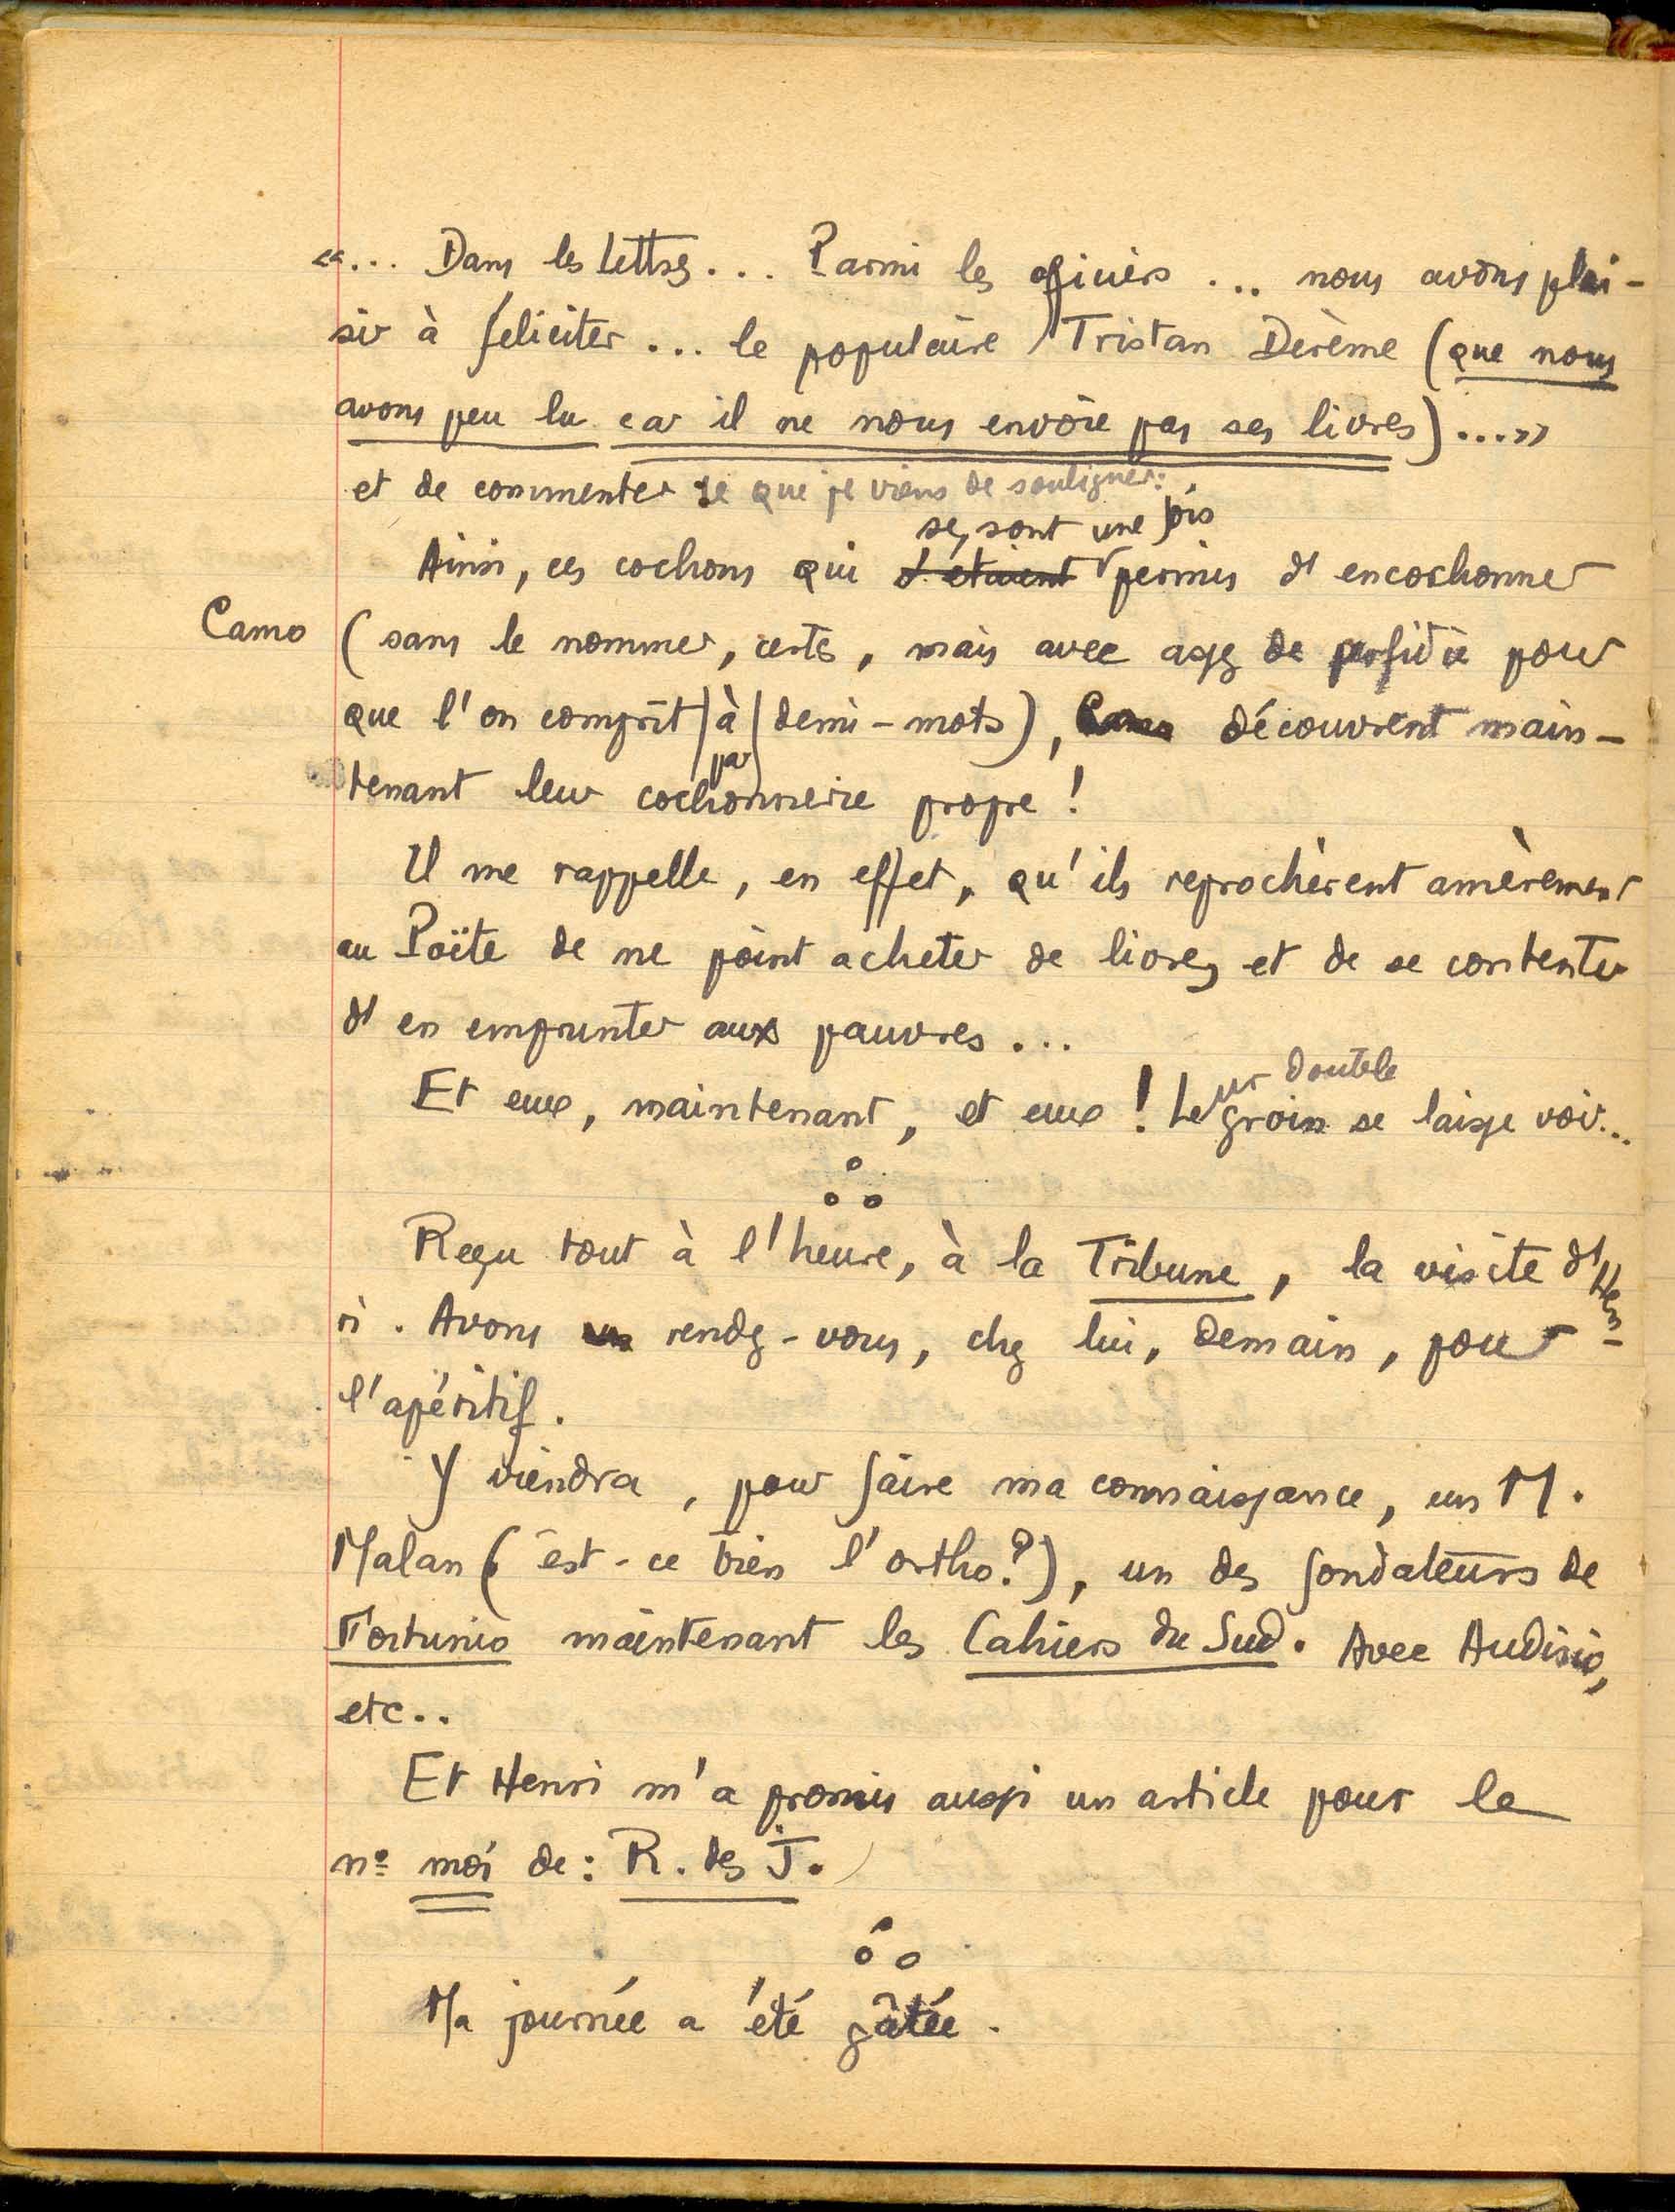 «... Dans les Lettres... Parmi les officiers... nous avons plai-
sir à féliciter... le populaire Tristan Derème (que nous
avons peu lu car il ne nous envoie pas ses livres)...»
et de commenter ce que je viens de souligner:
se sont une fois
Ainsi, ces cochons qui s'étaient permis d'encochonner
Camo (sans le nommer, certes, mais avec assez de perfidie pour
que l'on comprît à demi-mots), Camo découvrent main-
par
tenant leur cochonnerie propre!
Il me rappelle, en effet, qu'ils reprochèrent amèrement
au Poëte de ne point acheter de livres et de se contenter
d'en emprunter aux pauvres...
Et eux, maintenant, et eux! Leur double groin se laisse voir...
Reçu tout à l'heure, à la Tribune, la visite d'Hen-
ri. Avons rendez-vous, chez lui, demain, pour
l'apéritif.
Y viendra, pour faire ma connaissance, un M.
Malan (est-ce bien l'ortho?), un des fondateurs de
Fortunio maintenant les Cahiers du Sud. Avec Audisio,
etc..
Et Henri m'a promis aussi un article pour le
nº moi de: R. des J.
Ma journée a été gâtée.